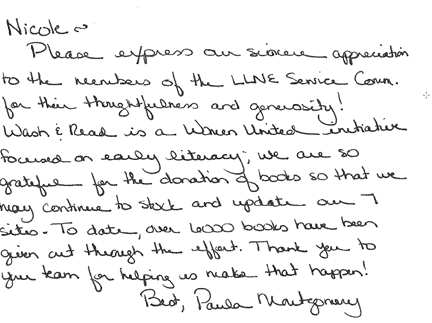 Nicole ~
Please express our sincere appreciation
to the members of the LLNE Service Comm.
for their thoughtfulness and generosity!
Wash & Read is a Women United initiative
focused on early literacy; we are so
grateful for the donation of books so that we
may continue to stock and update our 7
sites. To date, over 6000 books have been
given out through the effort. Thank you to
your team for helping us make that happen!
Best, Paula Montgomery